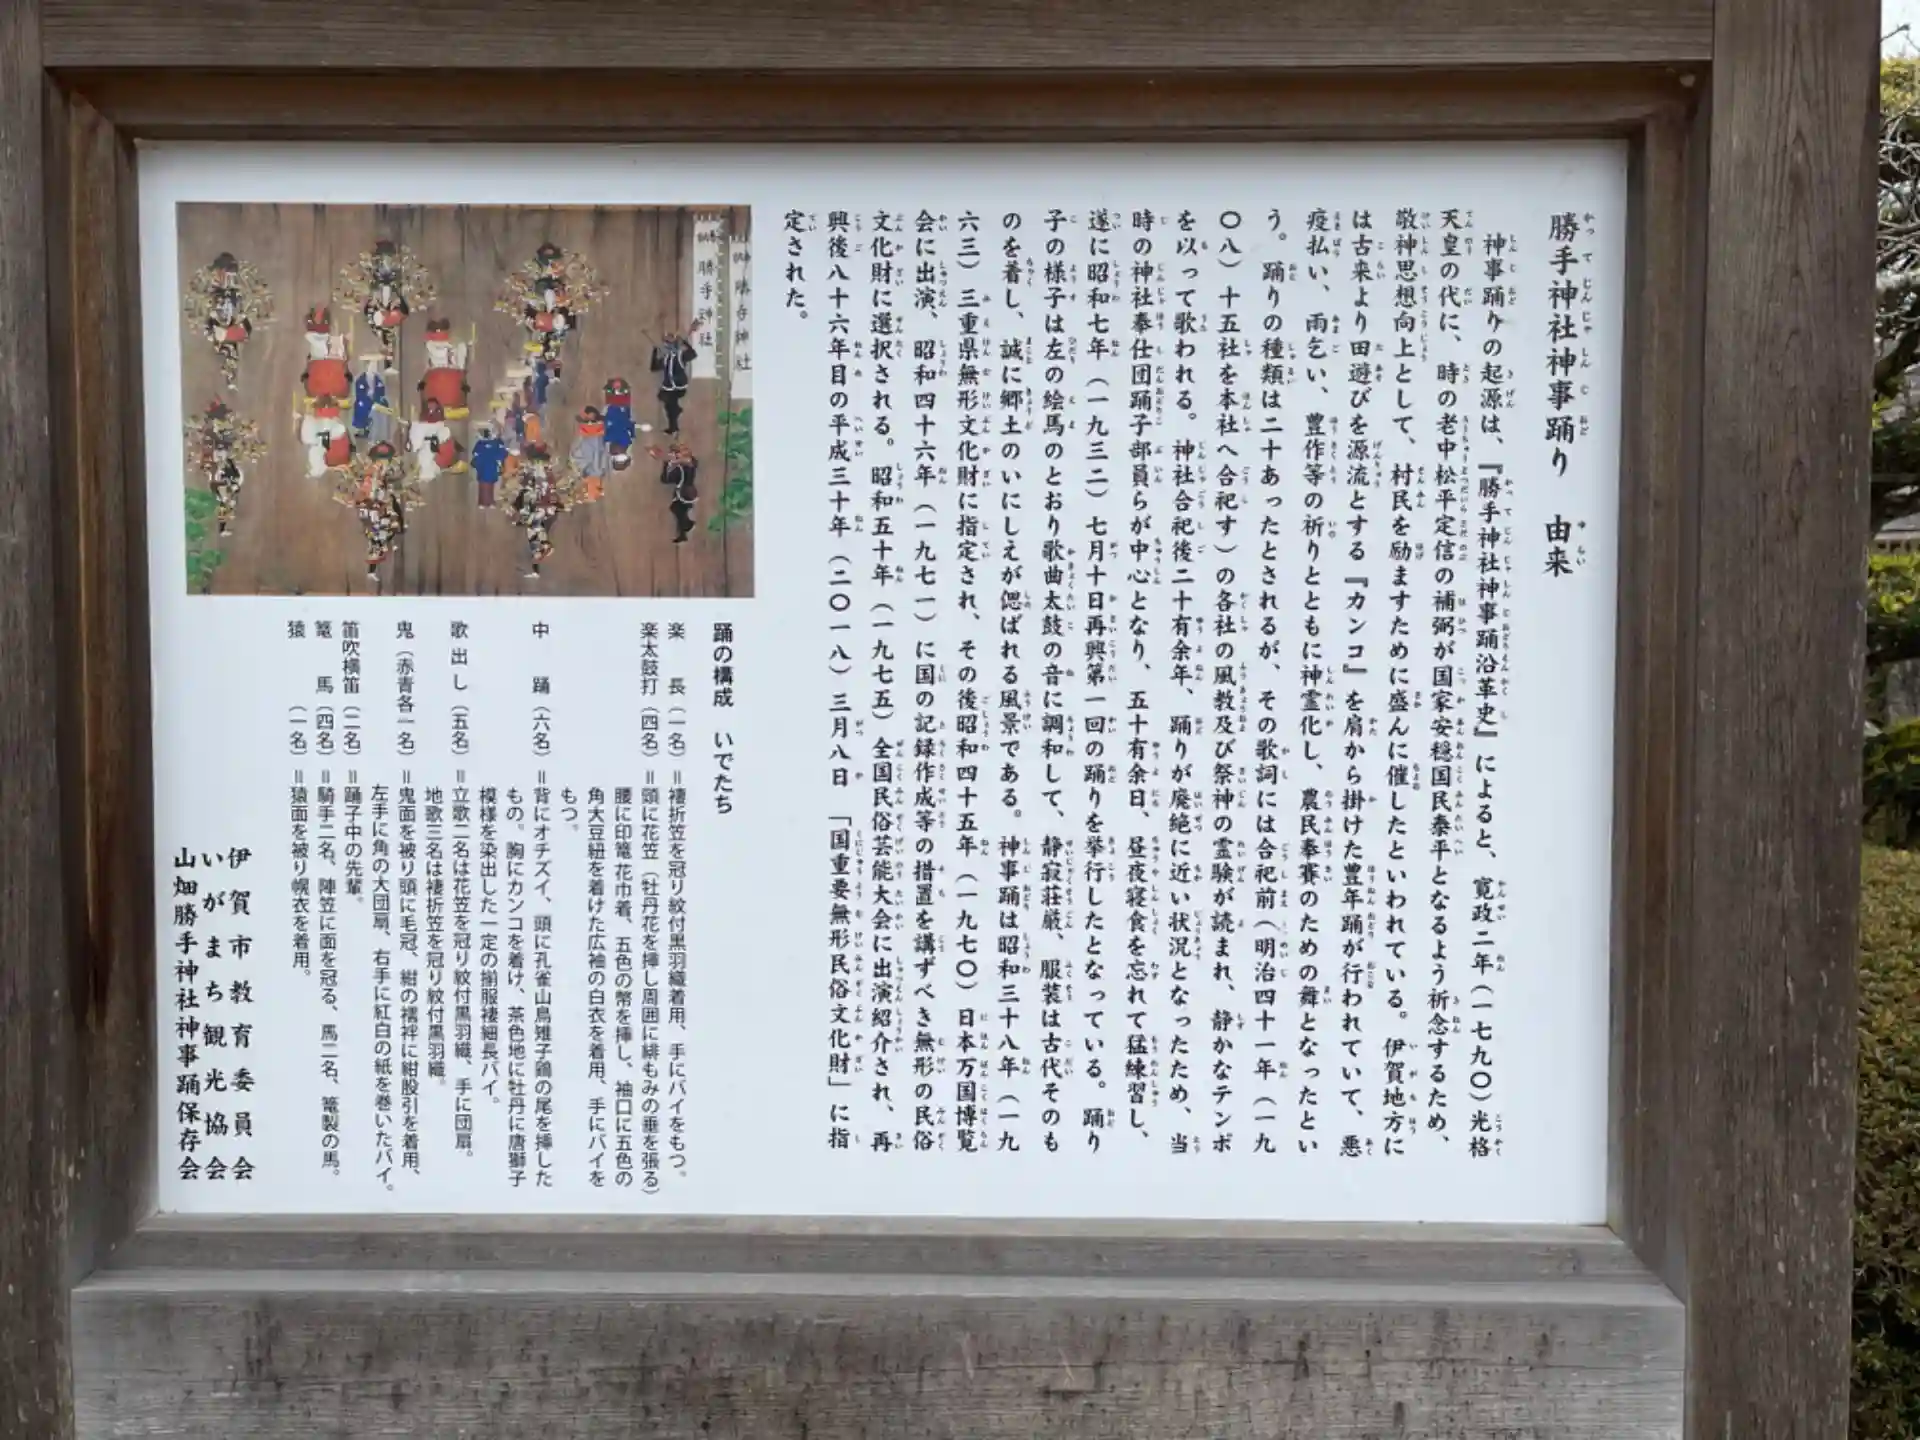 勝手神社神事踊り 由来
神事踊りの起源は、『勝手神社神事踊沿革史』によると、寛政二年(一七九〇)光格
天皇の代に、時の老中松平定信の補弼が国家安穏国民泰平となるよう祈念するため、
敬神思想向上として、村民を励ますために盛んに催したといわれている。伊賀地方に
は古来より田遊びを源流とする『カンコ』を肩から掛けた豊年踊が行われていて、悪
疫払い、雨乞い、豊作等の祈りとともに神霊化し、農民奉賽のための舞となったとい
う。踊りの種類は二十あったとされるが、その歌詞には合祀前(明治四十一年(一九
〇八)十五社を本社へ合祀す)の各社の風教及び祭神の霊験が読まれ、静かなテンポ
を以って歌われる。神社合祀後二十有余年、踊りが廃絶に近い状況となったため、当
時の神社奉仕団踊子部員らが中心となり、五十有余日、昼夜寝食を忘れて猛練習し、
遂に昭和七年(一九三二)七月十日再興第一回の踊りを挙行したとなっている。踊り
子の様子は左の絵馬のとおり歌曲太鼓の音に調和して、静寂荘厳、服装は古代そのも
のを着し、誠に郷土のいにしえが偲ばれる風景である。神事踊は昭和三十八年(一九
六三)三重県無形文化財に指定され、その後昭和四十五年(一九七〇)日本万国博覧
会に出演、昭和四十六年(一九七一)に国の記録作成等の措置を講ずべき無形の民俗
文化財に選択される。昭和五十年(一九七五)全国民俗芸能大会に出演紹介され、再
興後八十六年目の平成三十年(二〇一八)三月八日「国重要無形民俗文化財」に指
定された。
勝手神社
勝手神社
踊の構成 いでたち
楽長(一名)=褄折笠を冠り紋付黒羽織着用、手にバイをもつ。
楽太鼓打(四名)=頭に花笠(牡丹花を挿し周囲に緋もみの垂を張る)
腰に印篭花巾着、五色の幣を挿し、袖口に五色の
角大豆紐を着けた広袖の白衣を着用、手にバイを
もつ。
中踊(六名)=背にオチズイ、頭に孔雀山鳥雉子鶏の尾を挿した
もの。胸にカンコを着け、茶色地に牡丹に唐獅子
模様を染出した一定の揃服褄細長バイ。
歌出し(五名)=立歌二名は花笠を冠り紋付黒羽織、手に団扇。
地歌三名は褄折笠を冠り紋付黒羽織。
鬼(赤青各一名)=鬼面を被り頭に毛冠、紺の襦袢に紺股引を着用、
左手に角の大団扇、右手に紅白の紙を巻いたバイ。
笛吹横笛(二名)=踊子中の先輩。
篭馬(四名)=騎手二名、陣笠に面を冠る、馬二名、篭製の馬。
猿(一名)=猿面を被り幌衣を着用。
伊賀市教育委員会
いがまち観光協会
山畑勝手神社神事踊保存会